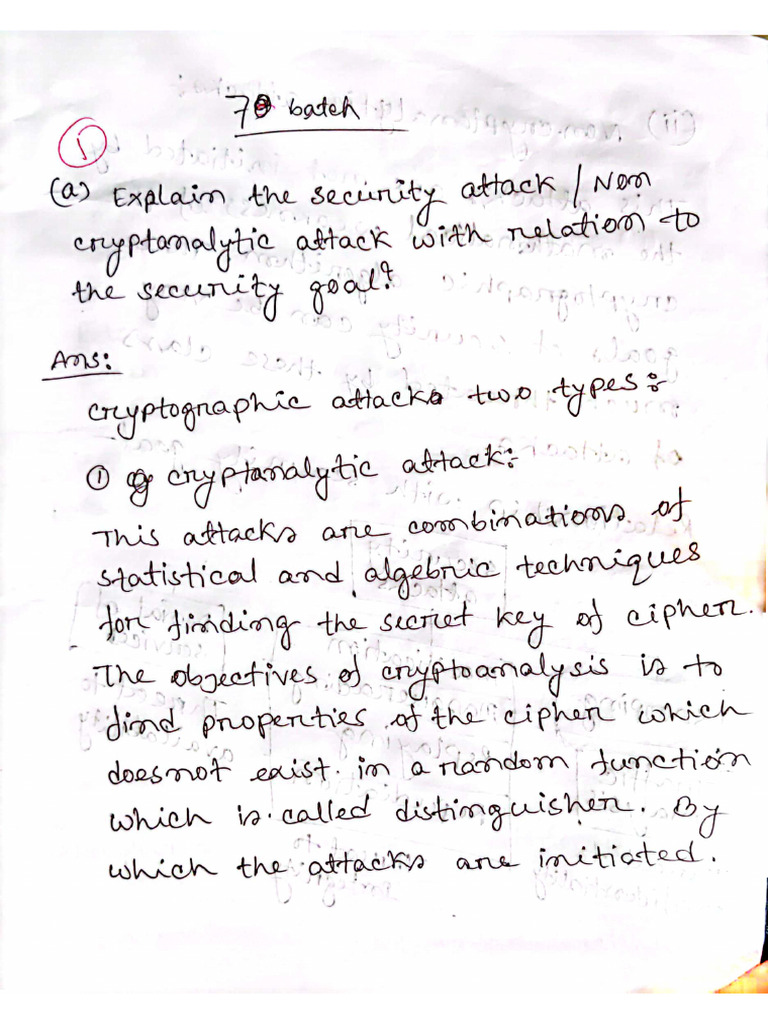 70 batch
①
(a) Explain the security attack / Non
cryptanalytic attack with relation to
the security goal?
Ans:
cryptographic attacks two types:
① cryptanalytic attack:
This attacks are combinations of
statistical and algebric techniques
for finding the secret key of cipher.
The objectives of cryptoanalysis is to
find properties of the cipher which
doesnot exist in a random function
which is called distinguisher. By
which the attacks are initiated.